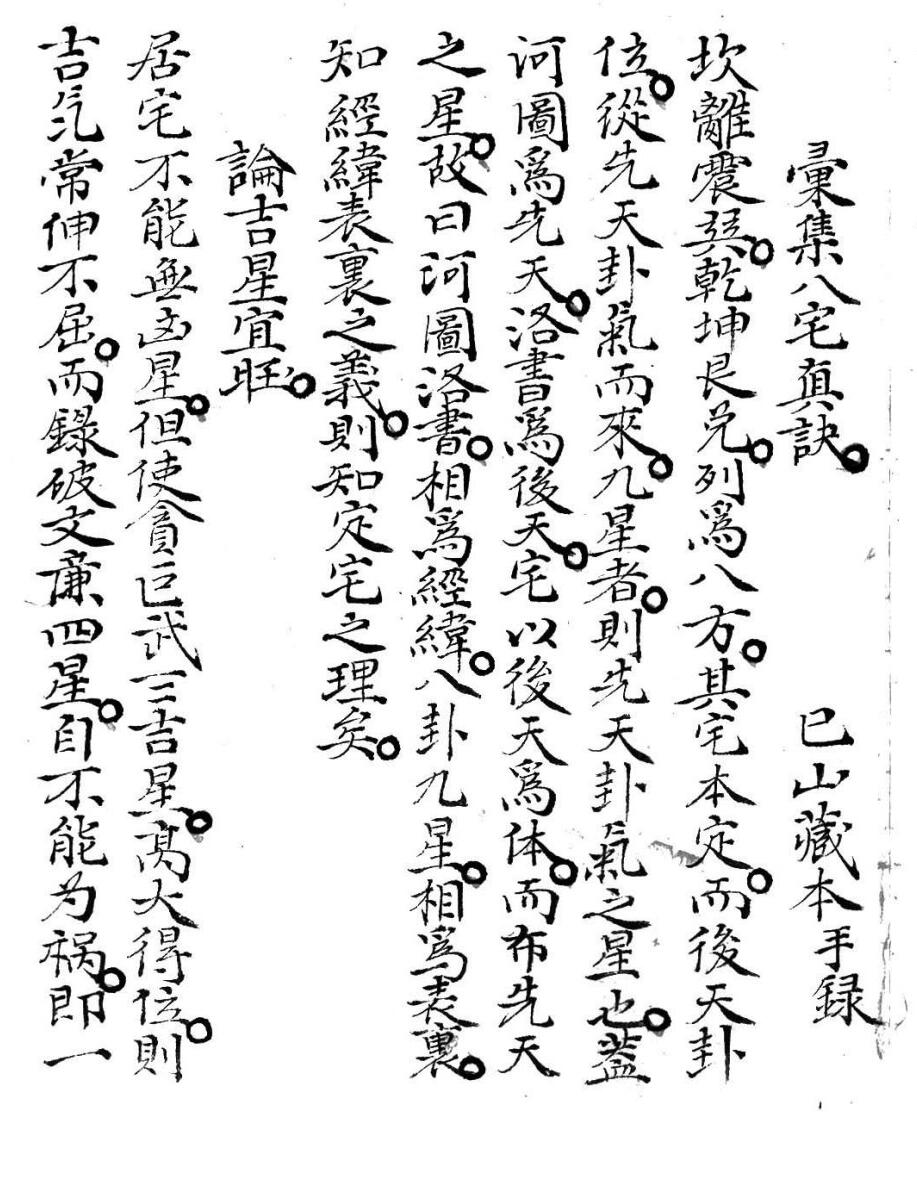 彙集八宅真訣。 巳山藏本手録
坎離震巽。乾坤艮兌。列爲八方。其宅本定。而後天卦
位。從先天卦氣而來。九星者。則先天卦氣之星也。蓋
河圖爲先天。洛書爲後天。宅以後天爲体。而布先天
之星。故曰河圖洛書。相爲經緯。八卦九星。相爲表裏。
知經緯表裏之義。則知定宅之理矣。
論吉星宜旺。
居宅不能無凶星。但使貪巨武三吉星。高大得位。則
吉氣常伸不屈。而錄破文廉四星。自不能为禍。即一